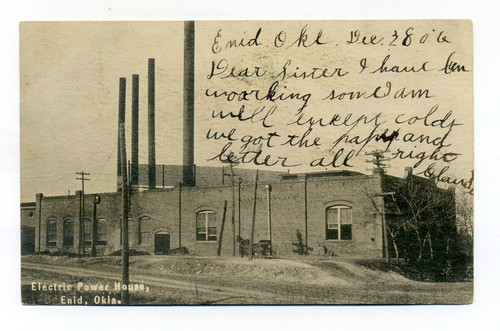 Enid Okl. Dec. 28 06
Dear Sister I have ben
woorking some I am
well except colds
we got the paper and
letter all right
Claud
Electric Power House,
Enid, Okla.